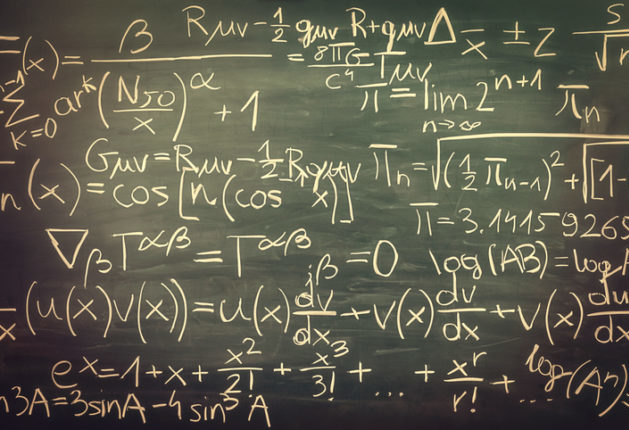 (x) = β / ((N₅₀ / x)^α + 1)
Rμν - ½ gμν R + gμνΛ = 8πG/c⁴ Tμν
x̄ ± z s/√
Σ k=0 n-1 ar^k
π = lim n→∞ 2^(n+1) π_n
Gμν = Rμν - ½ R gμν
π_n = √((½ π_(n-1))² + [1-
n(x) = cos[n(cos⁻¹ x)]
π = 3.14159265
∇_β T^αβ = T^αβ _;β = 0
log(AB) = log A
x (u(x)v(x)) = u(x) dv/dx + v(x) dv/dx + v(x) du/dx
e^x = 1 + x + x²/2! + x³/3! + ... + x^r/r! + ...
log(A^n)
n3A = 3sinA - 4sin³A